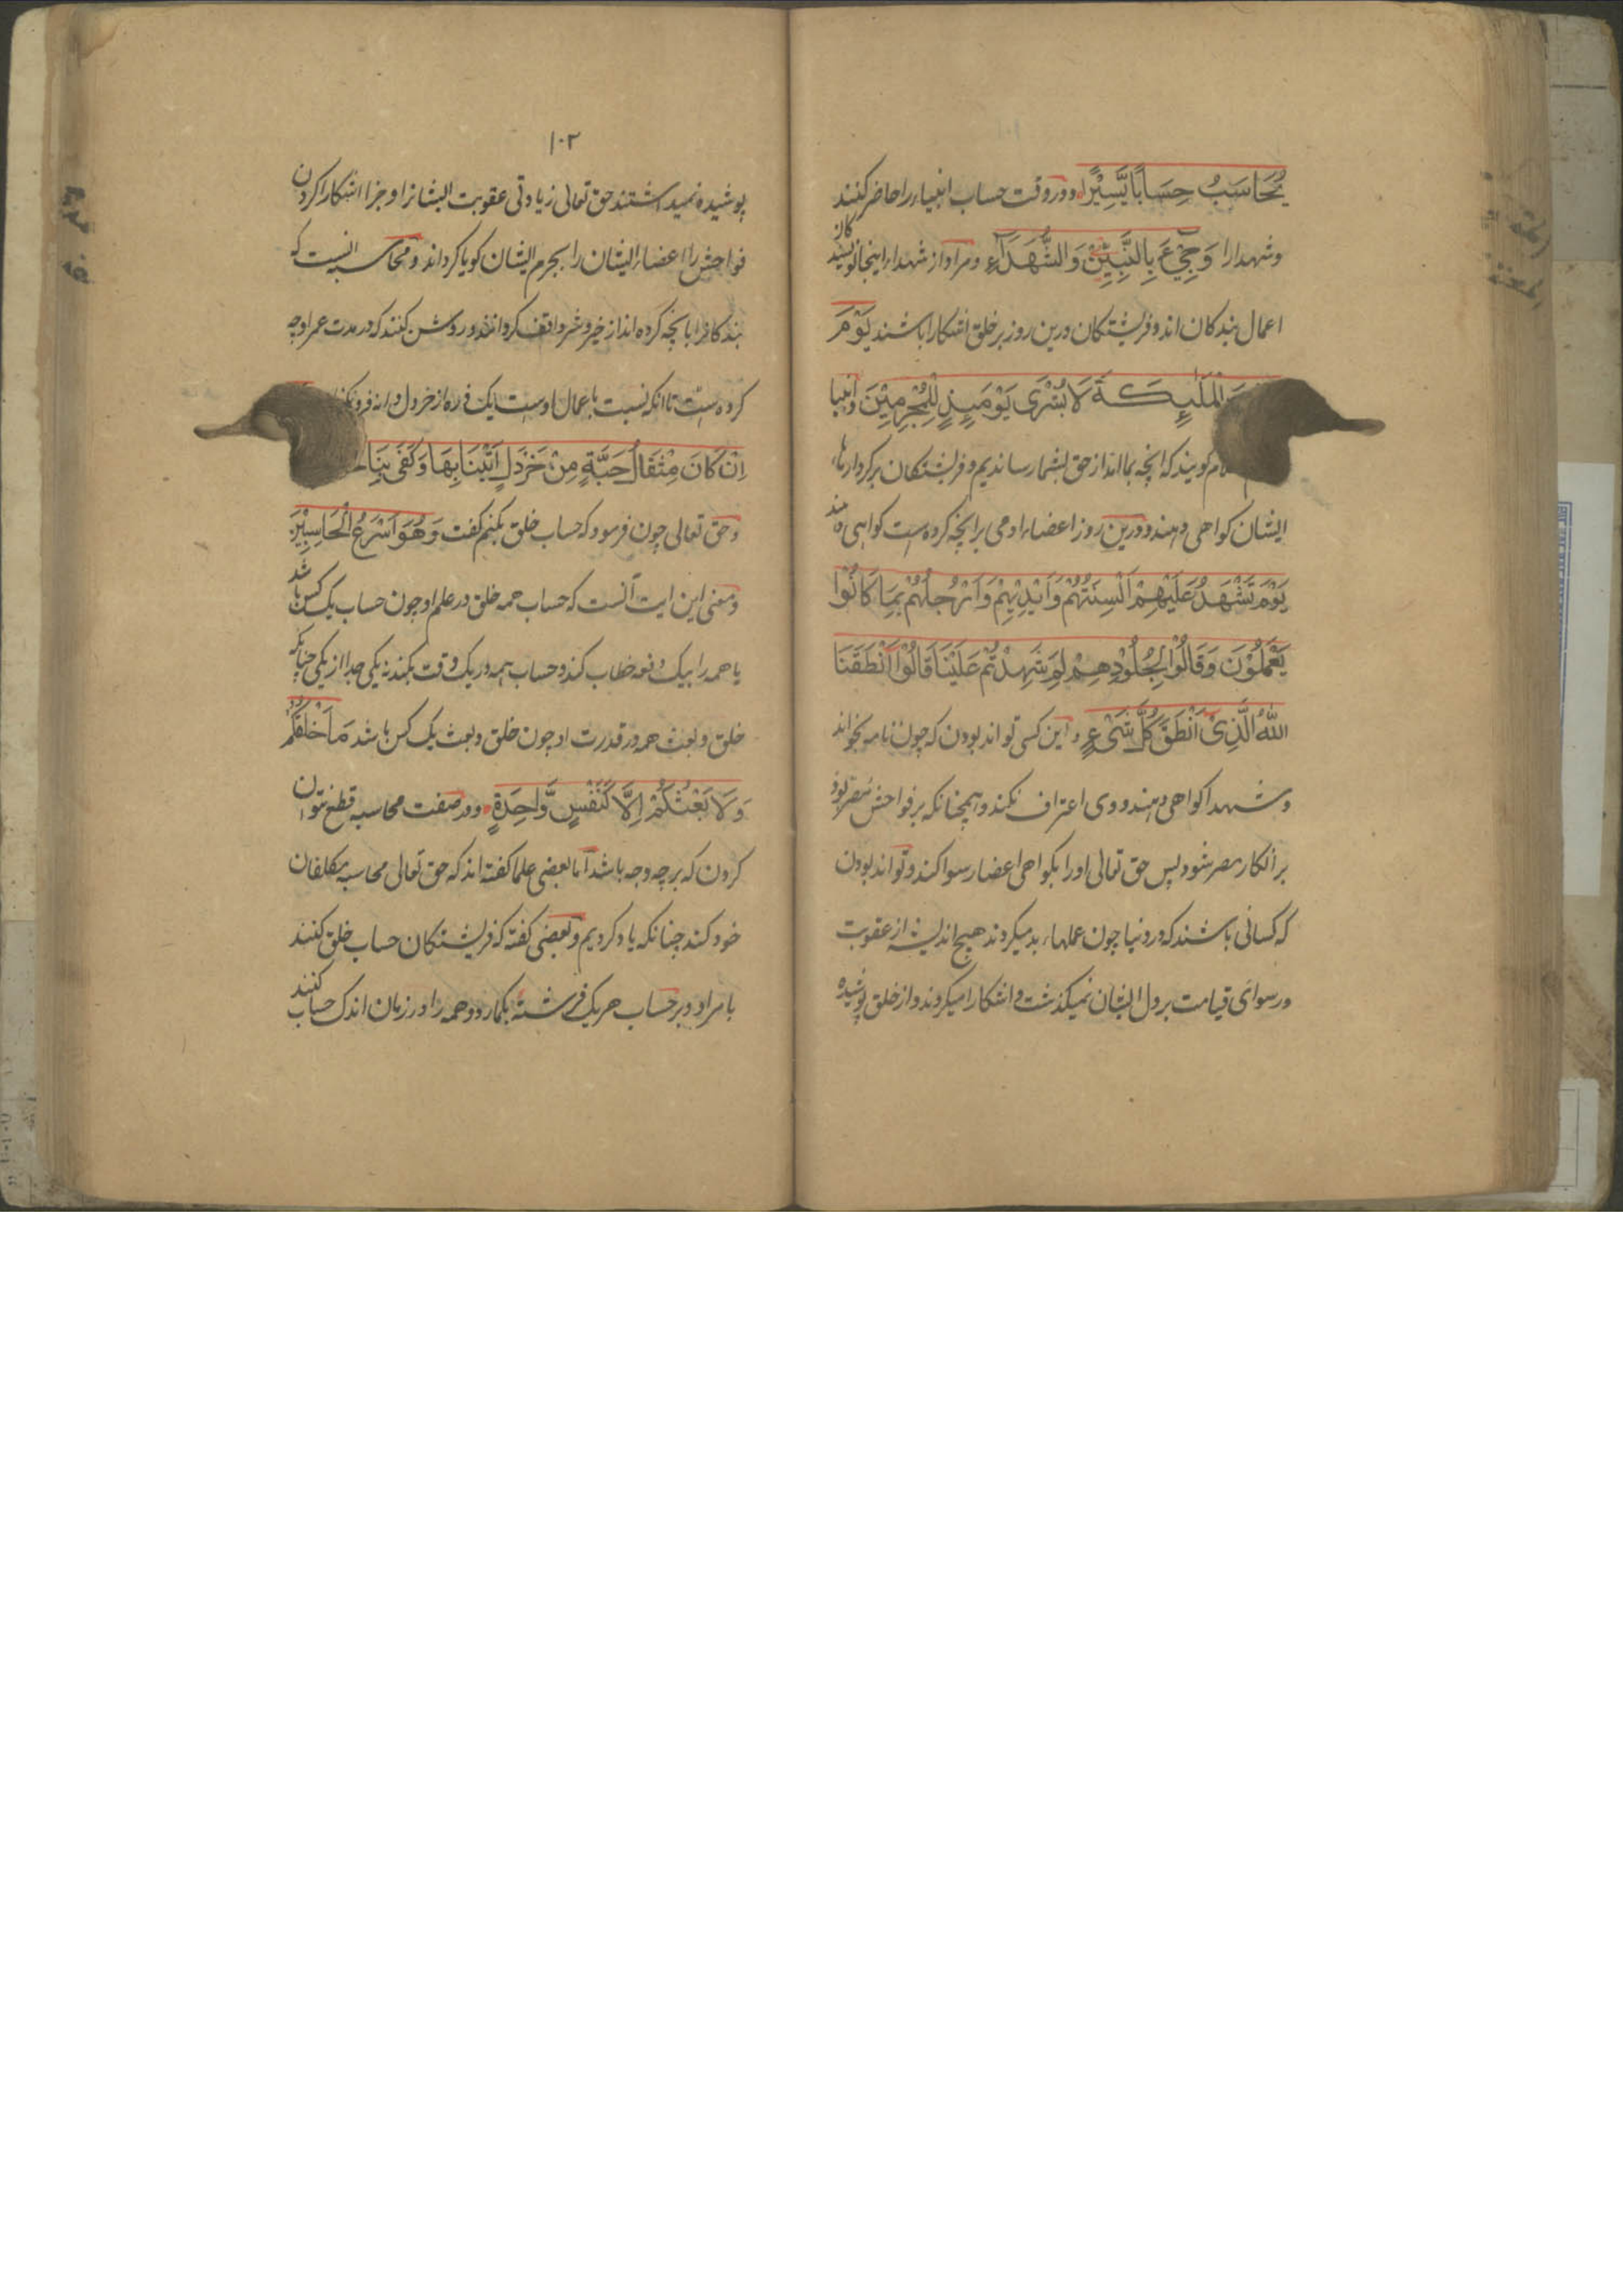 یُحَاسَبُ حِسَابًا یَّسِیْرًا ودر وقت حساب انبیاء را حاضر کنند
وشهدا را وَجِیْءَ بِالنَّبِیّٖنَ وَالشُّهَدَآءِ ومراد از شهداء اینجا نویسند کان
اعمال بندکان اند و فریشتکان درین روز بر خلق اشکارا باشند یَوْمَ
الْمَلٰٓئِکَةَ لَا بُشْرٰی یَوْمَئِذٍ لِّلْمُجْرِمِیْنَ وانبیا
کویند که انچه بما اند از حق بشما رساندیم و فریشتکان بر کردارهاء
ایشان کواهی دهند ودرین روز اعضاء ادمی برانچه کرده است کواهی دهند
یَوْمَ تَشْهَدُ عَلَیْهِمْ اَلْسِنَتُهُمْ وَاَیْدِیْهِمْ وَاَرْجُلُهُمْ بِمَا کَانُوْا
یَعْمَلُوْنَ وَقَالُوْا لِجُلُوْدِهِمْ لِمَ شَهِدْتُّمْ عَلَیْنَا قَالُوْا اَنْطَقَنَا
اللّٰهُ الَّذِیْ اَنْطَقَ کُلَّ شَیْءٍ و این کسی تواند بودن که چون نامه بخواند
وشهدا کواهی دهند ووی اعتراف نکند وهمچنانکه بر فواحش مصر بود
بر انکار مصر شود پس حق تعالی اورا بکواهی اعضا رسوا کند وتواند بودن
که کسانی باشند که در دنیا چون عملهاء بد میکردند هیچ اندیشه از عقوبت
ورسوائی قیامت بر دل ایشان نمیکذشت و اشکارا میکردند واز خلق پوشیده
۱۰۲
پوشیده نمیداشتند حق تعالی زیادتی عقوبت ایشانرا وجزا اشکارا کردن
فواحش را اعضاء ایشان را بجرم ایشان کویا کرداند ومحاسبه انست که
بندکانرا بانچه کرده اند از خیر وشر واقف کردانند وروشن کنند که در مدت عمر اوچه
کرده است تا انکه نسبت باعمال اوست یک ذره از خردل دانه فرو
اِنْ کَانَ مِثْقَالَ حَبَّةٍ مِّنْ خَرْدَلٍ اَتَیْنَا بِهَا وَکَفٰی بِنَا
وحق تعالی چون فرمود که حساب خلق بکنم کفت وَهُوَ اَسْرَعُ الْحَاسِبِیْنَ
ومعنی این ایت آنست که حساب همه خلق در علم او چون حساب یک کس باشد
یا همه را بیک دفعه خطاب کند وحساب همه در یک وقت بکند نه یکی جدا از یکی چنانکه
خلق وبعث همه در قدرت او چون خلق وبعث یک کس باشد مَا خَلْقُکُمْ
وَلَا بَعْثُکُمْ اِلَّا کَنَفْسٍ وَّاحِدَةٍ ودر صفت محاسبه قطع نتوان
کردن که بر چه وجه باشد اما بعضی علما کفته اند که حق تعالی محاسبه مکلفان
خود کند چنانکه یاد کردیم وبعضی کفته که فریشتکان حساب خلق کنند
بامر او وبر حساب هر یک فرشته بکمارد وهمه را در زمان اندک حساب کنند